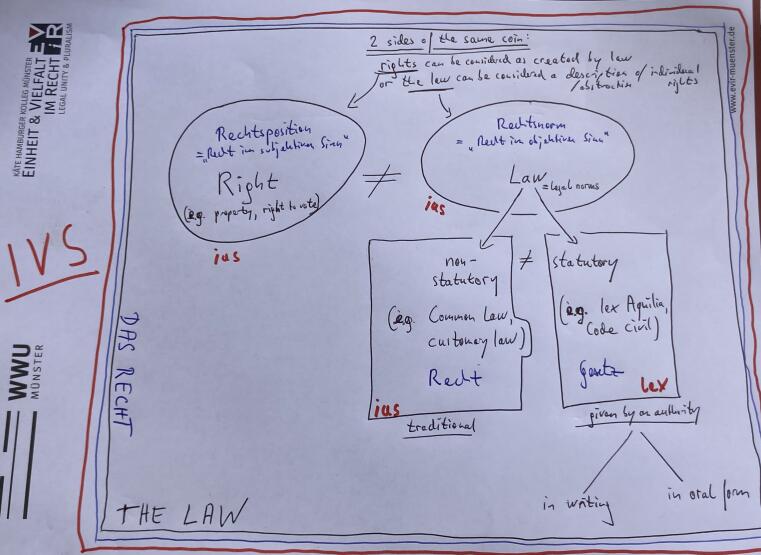 2 sides of the same coin:
rights can be considered as created by law
or the law can be considered a description of individual
/abstraction rights
Rechtsposition
= „Recht im subjektiven Sinn“
Right
(e.g. property, right to vote)
ius
≠
Rechtsnorm
= „Recht im objektiven Sinn“
Law = legal norms
ius
non-
statutory
(e.g. Common Law,
customary law)
Recht
ius
traditional
≠
statutory
(e.g. lex Aquilia,
Code civil)
Gesetz
lex
given by an authority
in writing
in oral form
THE LAW
DAS RECHT
IVS
KÄTE HAMBURGER KOLLEG MÜNSTER
EINHEIT & VIELFALT
IM RECHT
LEGAL UNITY & PLURALISM
EViR
www.evir-muenster.de
WWU
MÜNSTER